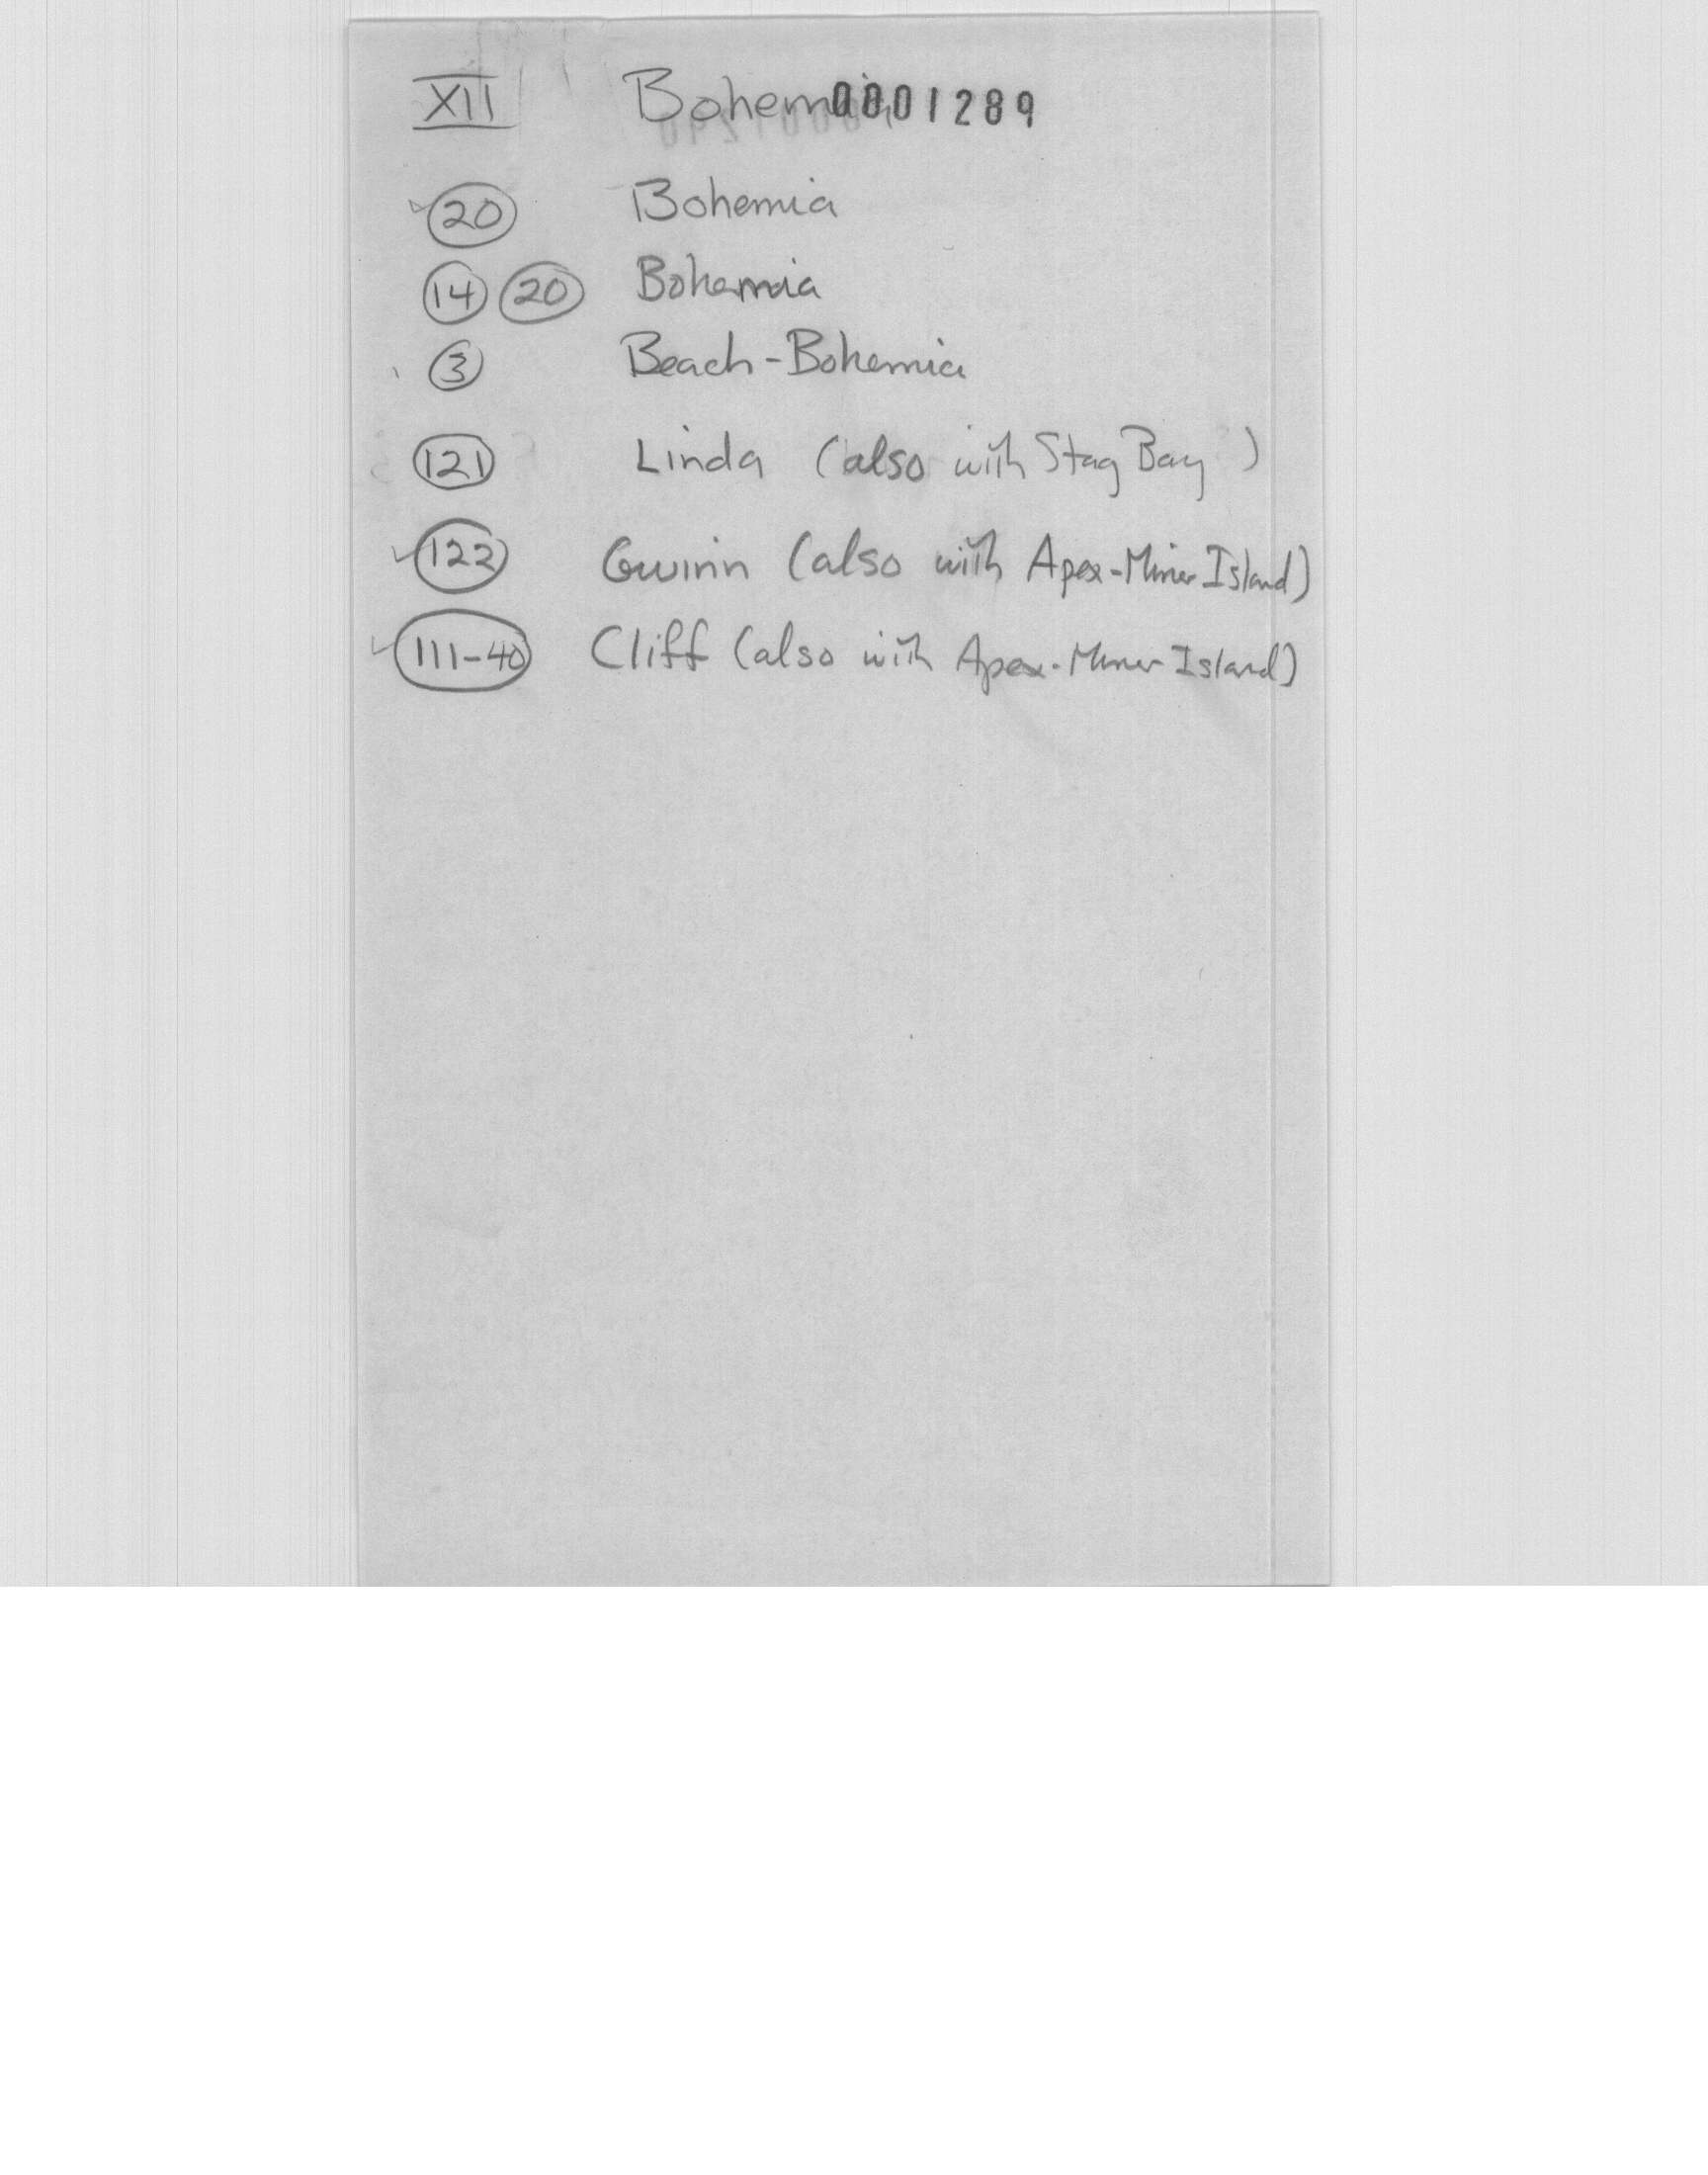 XII Bohemia 0001289
20 Bohemia
14 20 Bohemia
3 Beach-Bohemia
121 Linda (also with Stag Bay )
122 Gwinn (also with Apex-Miner Island)
111-40 Cliff (also with Apex-Miner Island)